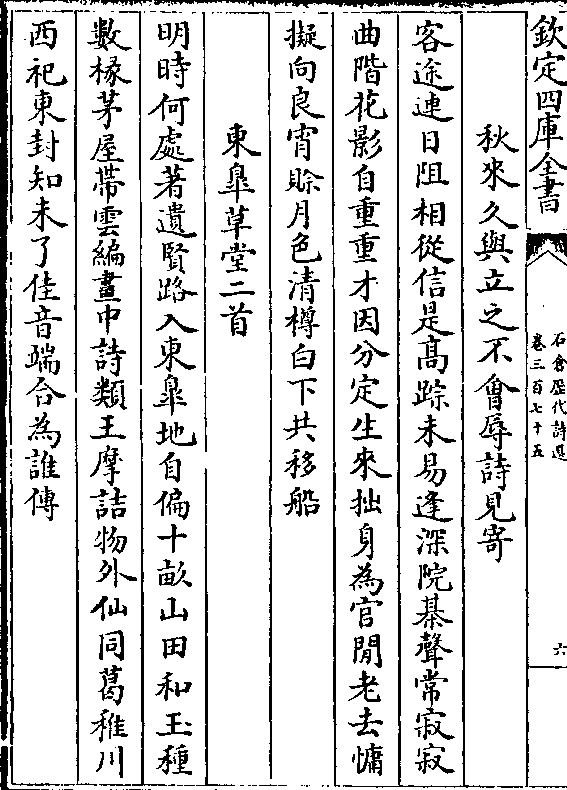 欽定四庫全書
石倉歷代詩選
卷三百七十五
六
秋來久與立之不會辱詩見寄
客途連日阻相從信是高踪未易逢深院棊聲常寂寂
曲階花影自重重才因分定生來拙身為官閒老去慵
擬向良宵賒月色清樽白下共移船
東臯草堂二首
明時何處著遺賢路入東臯地自偏十畝山田和玉種
數椽茅屋帶雲編畫中詩類王摩詰物外仙同葛稚川
西祀東封知未了佳音端合為誰傳